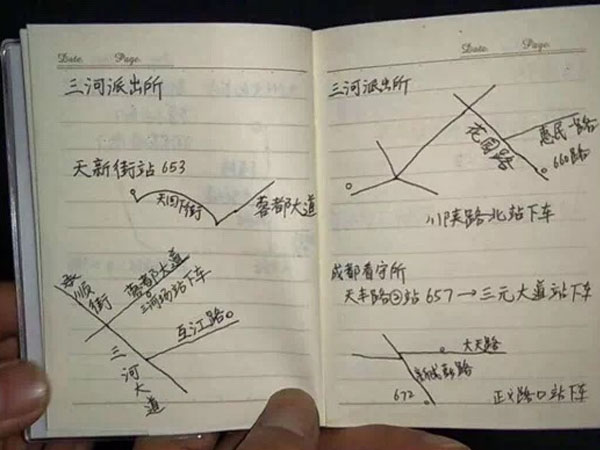 Date. Page.
三河派出所
天新街站 653
天回下街
蓉都大道
蓉都大道
三河场站下车
互江路
三河大道
Date. Page.
三河派出所
花园路
惠民一路
660路
川陕路北站下车
成都看守所
天丰路②站 657→三元大道站下车
大天路
新成彭路
672
正义路口站下车